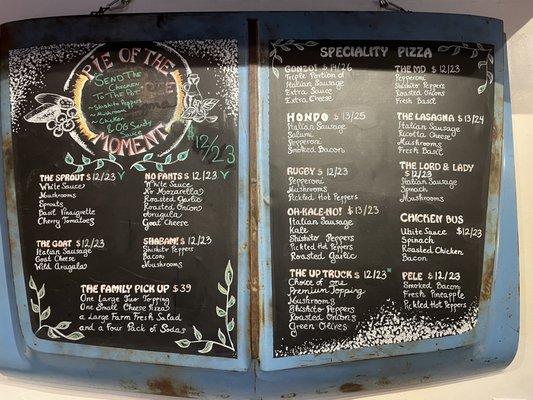 PIE OF THE MOMENT
Send the
Chicken
to the Pot
~Shishito Peppers
~Mushroom
~Chicken
& OG Sando
$12/23
THE SPROUT $12/23 V
White Sauce
Mushrooms
Sprouts
Basil Vinaigrette
Cherry Tomatoes
NO PANTS $12/23 V
White Sauce
No Mozzarella
Roasted Garlic
Roasted Onions
Arugula
Goat Cheese
THE GOAT $12/23
Italian Sausage
Goat Cheese
Wild Arugula
SHABAM! $12/23
Shishito Peppers
Bacon
Mushrooms
THE FAMILY PICK UP $39
One Large Two Topping
One Small Cheese Pizza
a Large Farm Fresh Salad
and a Four Pack of Sodas
SPECIALITY PIZZA
GONZO! $14/26
Triple Portion of
Italian Sausage
Extra Sauce
Extra Cheese
HONDO $13/25
Italian Sausage
Salami
Pepperoni
Smoked Bacon
RUGBY $12/23
Pepperoni
Mushrooms
Pickled Hot Peppers
OH-KALE-NO! $13/23
Italian Sausage
Kale
Shishito Peppers
Pickled Hot Peppers
Roasted Garlic
THE UP TRUCK $12/23
Choice of one
Premium Topping
Mushrooms
Shishito Peppers
Roasted Onions
Green Olives
THE MD $12/23
Pepperoni
Shishito Peppers
Roasted Onions
Fresh Basil
THE LASAGNA $13/24
Italian Sausage
Ricotta Cheese
Mushrooms
Fresh Basil
THE LORD & LADY
$12/23
Italian Sausage
Spinach
Mushrooms
CHICKEN BUS
White Sauce $12/23
Spinach
Roasted Chicken
Bacon
PELE $12/23
Smoked Bacon
Fresh Pineapple
Pickled Hot Peppers